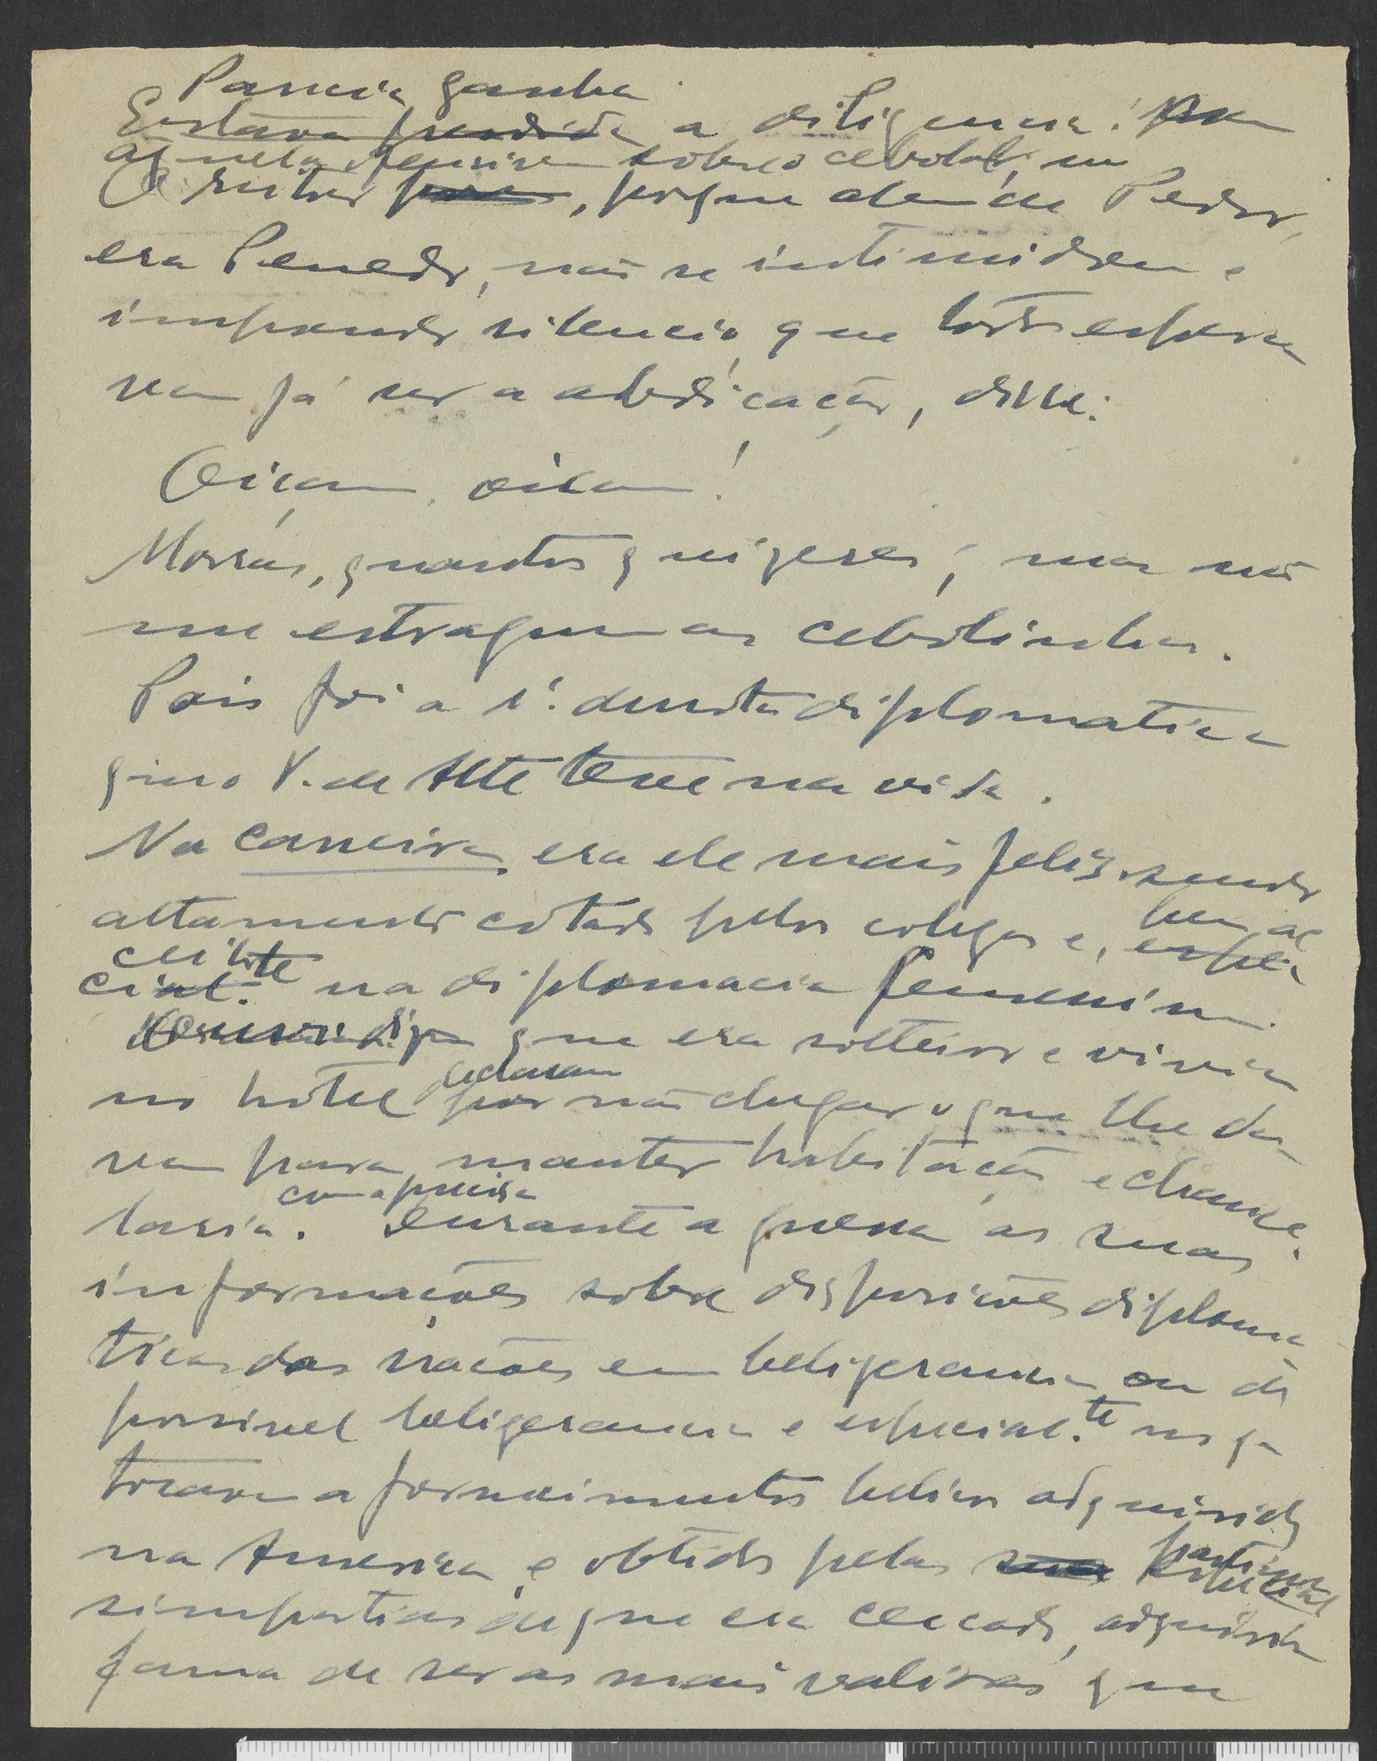 Parecia ganha
Estava perdida a diligencia!
aquela ofensiva sobre o cebolal, mas
O outro, porque alem de Pedro,
era Penedo, não se intimidou e
impondo silencio, que todos espera
vam já ser a abdicação, disse:
Oiçam, oiçam!
Morrás, quantos quizeres; mas não
me estraguem as cebolinhas.
Pois foi a 1ª derrota diplomatica
que o V. de Alte teve na vida.
Na carreira era ele mais feliz, sendo
altamente cotado pelos colegas e,
na diplomacia femenina.
que era solteiro e vivia
no hotel declarava por não chegar o que lhe da
vam para manter habitação e chance
laria. Durante a guerra as suas
informações sobre disposições diploma
ticas das nações em beligerancia ou de
possivel beligerancia e especial.te no q
tocava a fornecimentos belicos adquiridos
na America, e obtidos pelas particulares
simpatias de que era cercado, adquirira
fama de ser as mais valiosas que